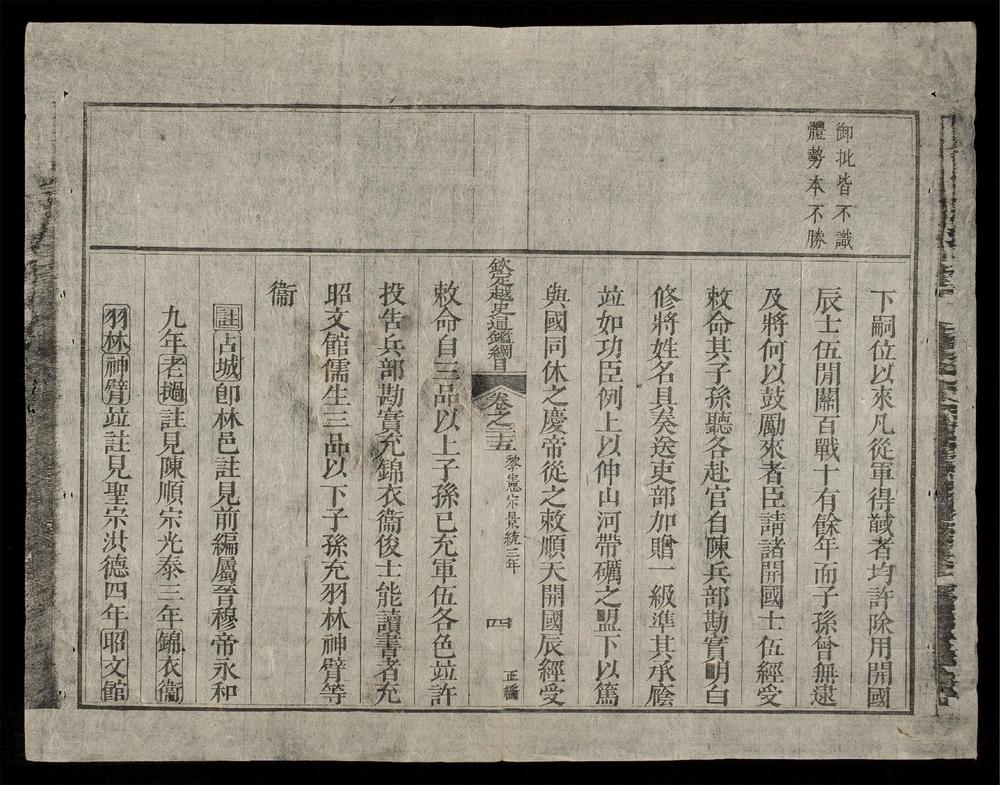 御批皆不識
體勢本不勝
下嗣位以來凡從軍得馘者均許除用開國
辰士伍開關百戰十有餘年而子孫曾無逮
及將何以鼓勵來者臣請諸開國士伍經受
敕命其子孫聽各赴官自陳兵部勘實明白
修將姓名具奏送吏部加贈一級準其承廕
竝如功臣例上以伸山河帶礪之盟下以篤
與國同休之慶帝從之敕順天開國辰經受
欽定越史通鑑綱目
卷之二十五
黎憲宗景統三年
四
正編
敕命自三品以上子孫已充軍伍各色竝許
投告兵部勘實充錦衣衞俊士能讀書者充
昭文館儒生三品以下子孫充羽林神臂等
衞
註占城卽林邑註見前編屬晉穆帝永和
九年老撾註見陳順宗光泰三年錦衣衞
羽林神臂竝註見聖宗洪德四年昭文館